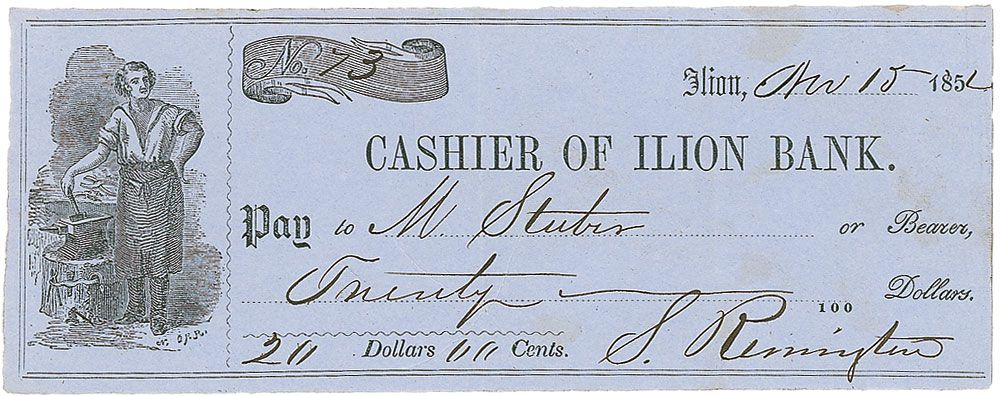 No. 73
Ilion, Nov 15 1852
CASHIER OF ILION BANK.
Pay to M. Stuber or Bearer,
Twenty 100 Dollars.
20 Dollars 00 Cents. S. Remington